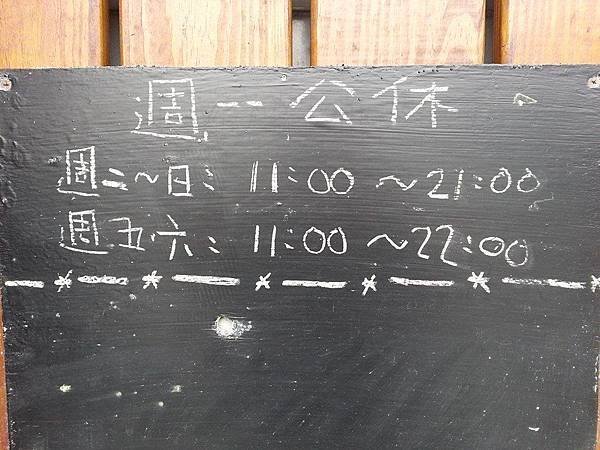 週一公休
週二～日：11:00～21:00
週五.六：11:00～22:00